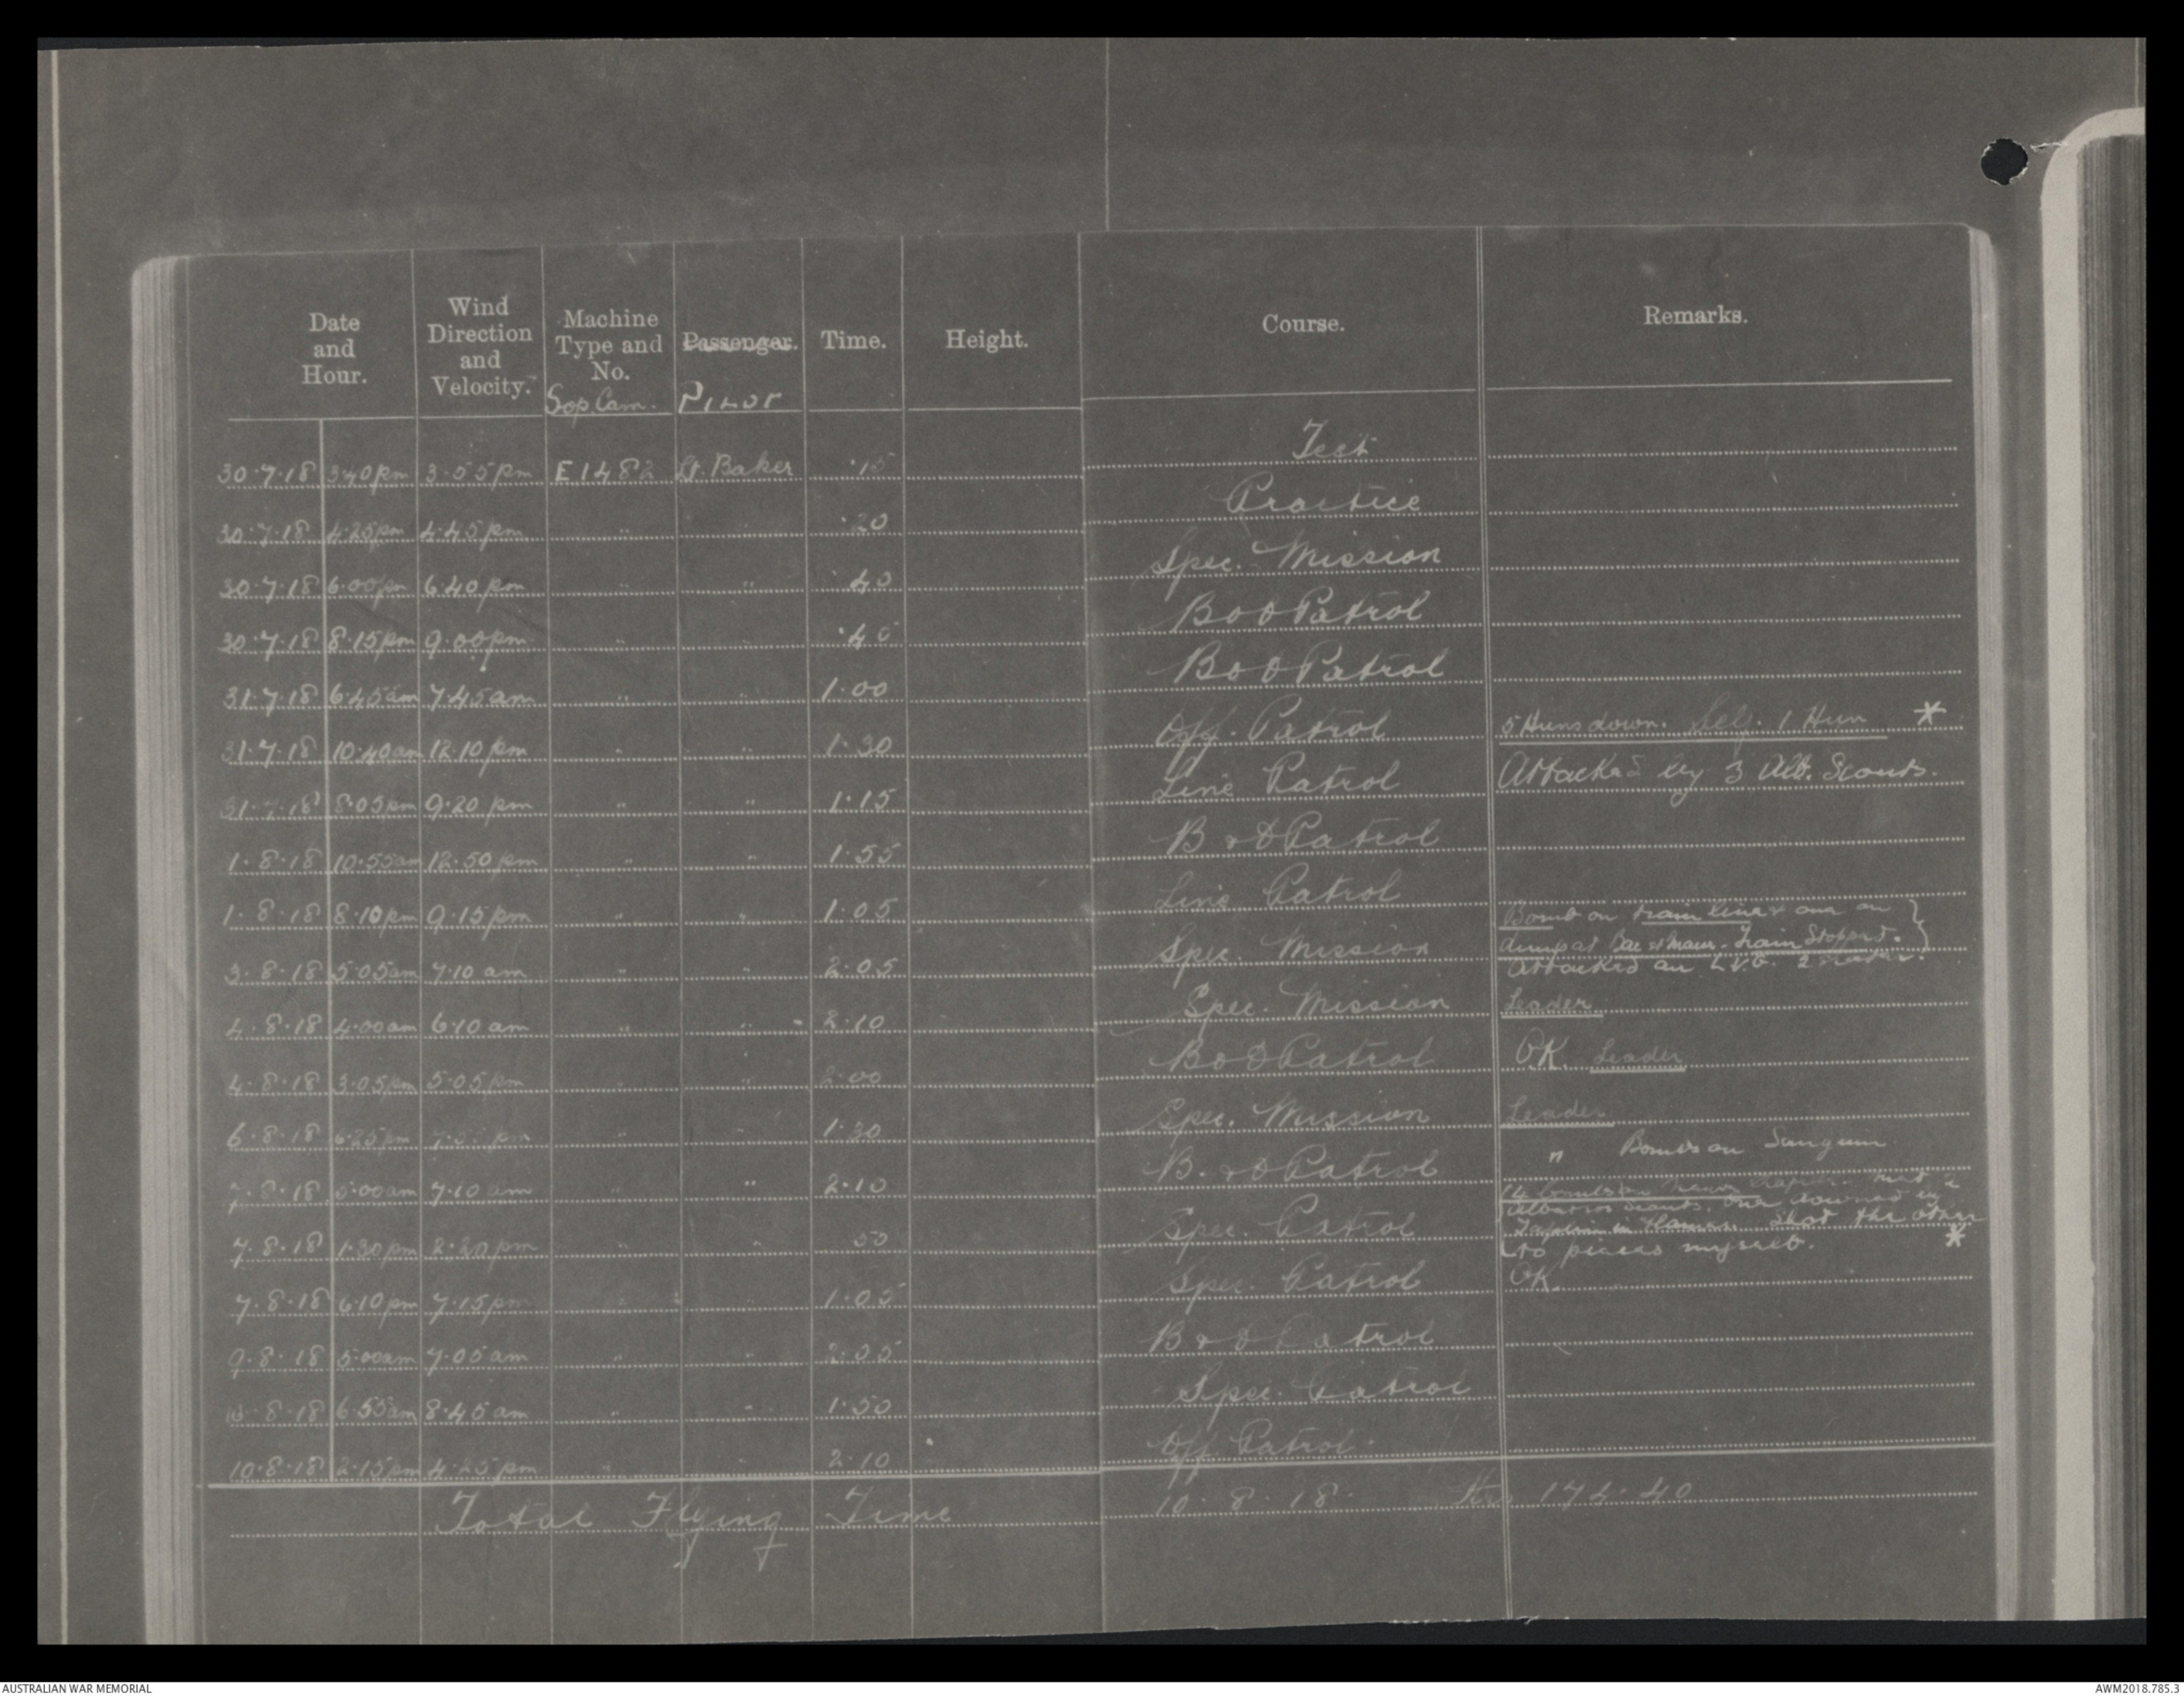 Date and Hour. Wind Direction and Velocity. Machine Type and No. Passenger. Time. Height. Course. Remarks.
Sop. Cam. PILOT
30.7.18 3.40pm 3.55pm E1482 Lt. Baker .15 Test
30.7.18 4.25pm 4.45pm " " .20 Practice
30.7.18 6.00pm 6.40pm " " .40 Spec. Mission
30.7.18 8.15pm 9.00pm " " .45 B & O Patrol
31.7.18 6.45am 7.45am " " 1.00 B & O Patrol
31.7.18 10.40am 12.10pm " " 1.30 Off. Patrol 5 Huns down. Self. 1 Hun *
31.7.18 8.05pm 9.20pm " " 1.15 Line Patrol Attacked by 3 Alb. Scouts.
1.8.18 10.55am 12.50pm " " 1.55 B & O Patrol
1.8.18 8.10pm 9.15pm " " 1.05 Line Patrol
Bomb on train line & one on
3.8.18 5.05am 7.10am " " 2.05 Spec. Mission dump at Bac St Maur. Train Stopped.
Attacked an L.V.G. 2 seater.
4.8.18 4.00am 6.10am " " 2.10 Spec. Mission Leader
4.8.18 3.05pm 5.05pm " " 2.00 B & O Patrol OK. Leader
6.8.18 6.25pm pm " " 1.30 Spec. Mission Leader
7.8.18 5.00am 7.10am " " 2.10 B. & O Patrol " Bombs on
14 bombs on
Albatros Scouts. One downed by
7.8.18 1.30pm 2.20pm " " 50 Spec. Patrol in flames. Shot the other
to pieces myself. *
7.8.18 6.10pm 7.15pm " " 1.05 Spec. Patrol OK
9.8.18 5.00am 7.05am " " 2.05 B & O Patrol
8.18 6.55am 8.45am " " 1.50 Spec. Patrol
10.8.18 2.15pm 4.25pm " " 2.10 Off. Patrol
Total Flying Time 10.8.18. Hrs 174.40
AUSTRALIAN WAR MEMORIAL AWM2018.785.3